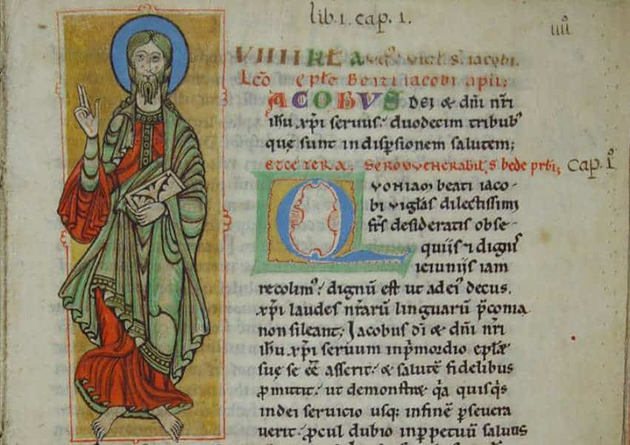 lib. 1. cap. 1.
iiij
VIIII KL AUG. VIGL. S. IACOBI.
Lcō eple Beati iacobi apli;
IACOBUS Dei & dñi nr̄i
ihu xp̄i seruus. duodecim tribub᷒
que sunt in disp̄sionem salutem;
ET CETERA; Sermo venerabilis bede pr̄bi; Cap. I.
QVONIAM beati iaco-
bi vigl̄as dilectissimi
fr̄s desideratis obse-
quijs ⁊ dignis
ieiunijs iam
recolim᷒. dignū est ut ad ei decus.
xp̄i laudes nr̄arū linguarū p̄conia
non sileant. Iacobus di & dñi nr̄i
ihu xp̄i seruum in p̄mordio ep̄læ
suę se eē asserit. & salutē fidelibus
p̄mittit. ut demonstret q̄a quisq᷒s
in dei servicio usq; in finē p̄severa
verit. p̄cul dubio in p̄petuū saluus